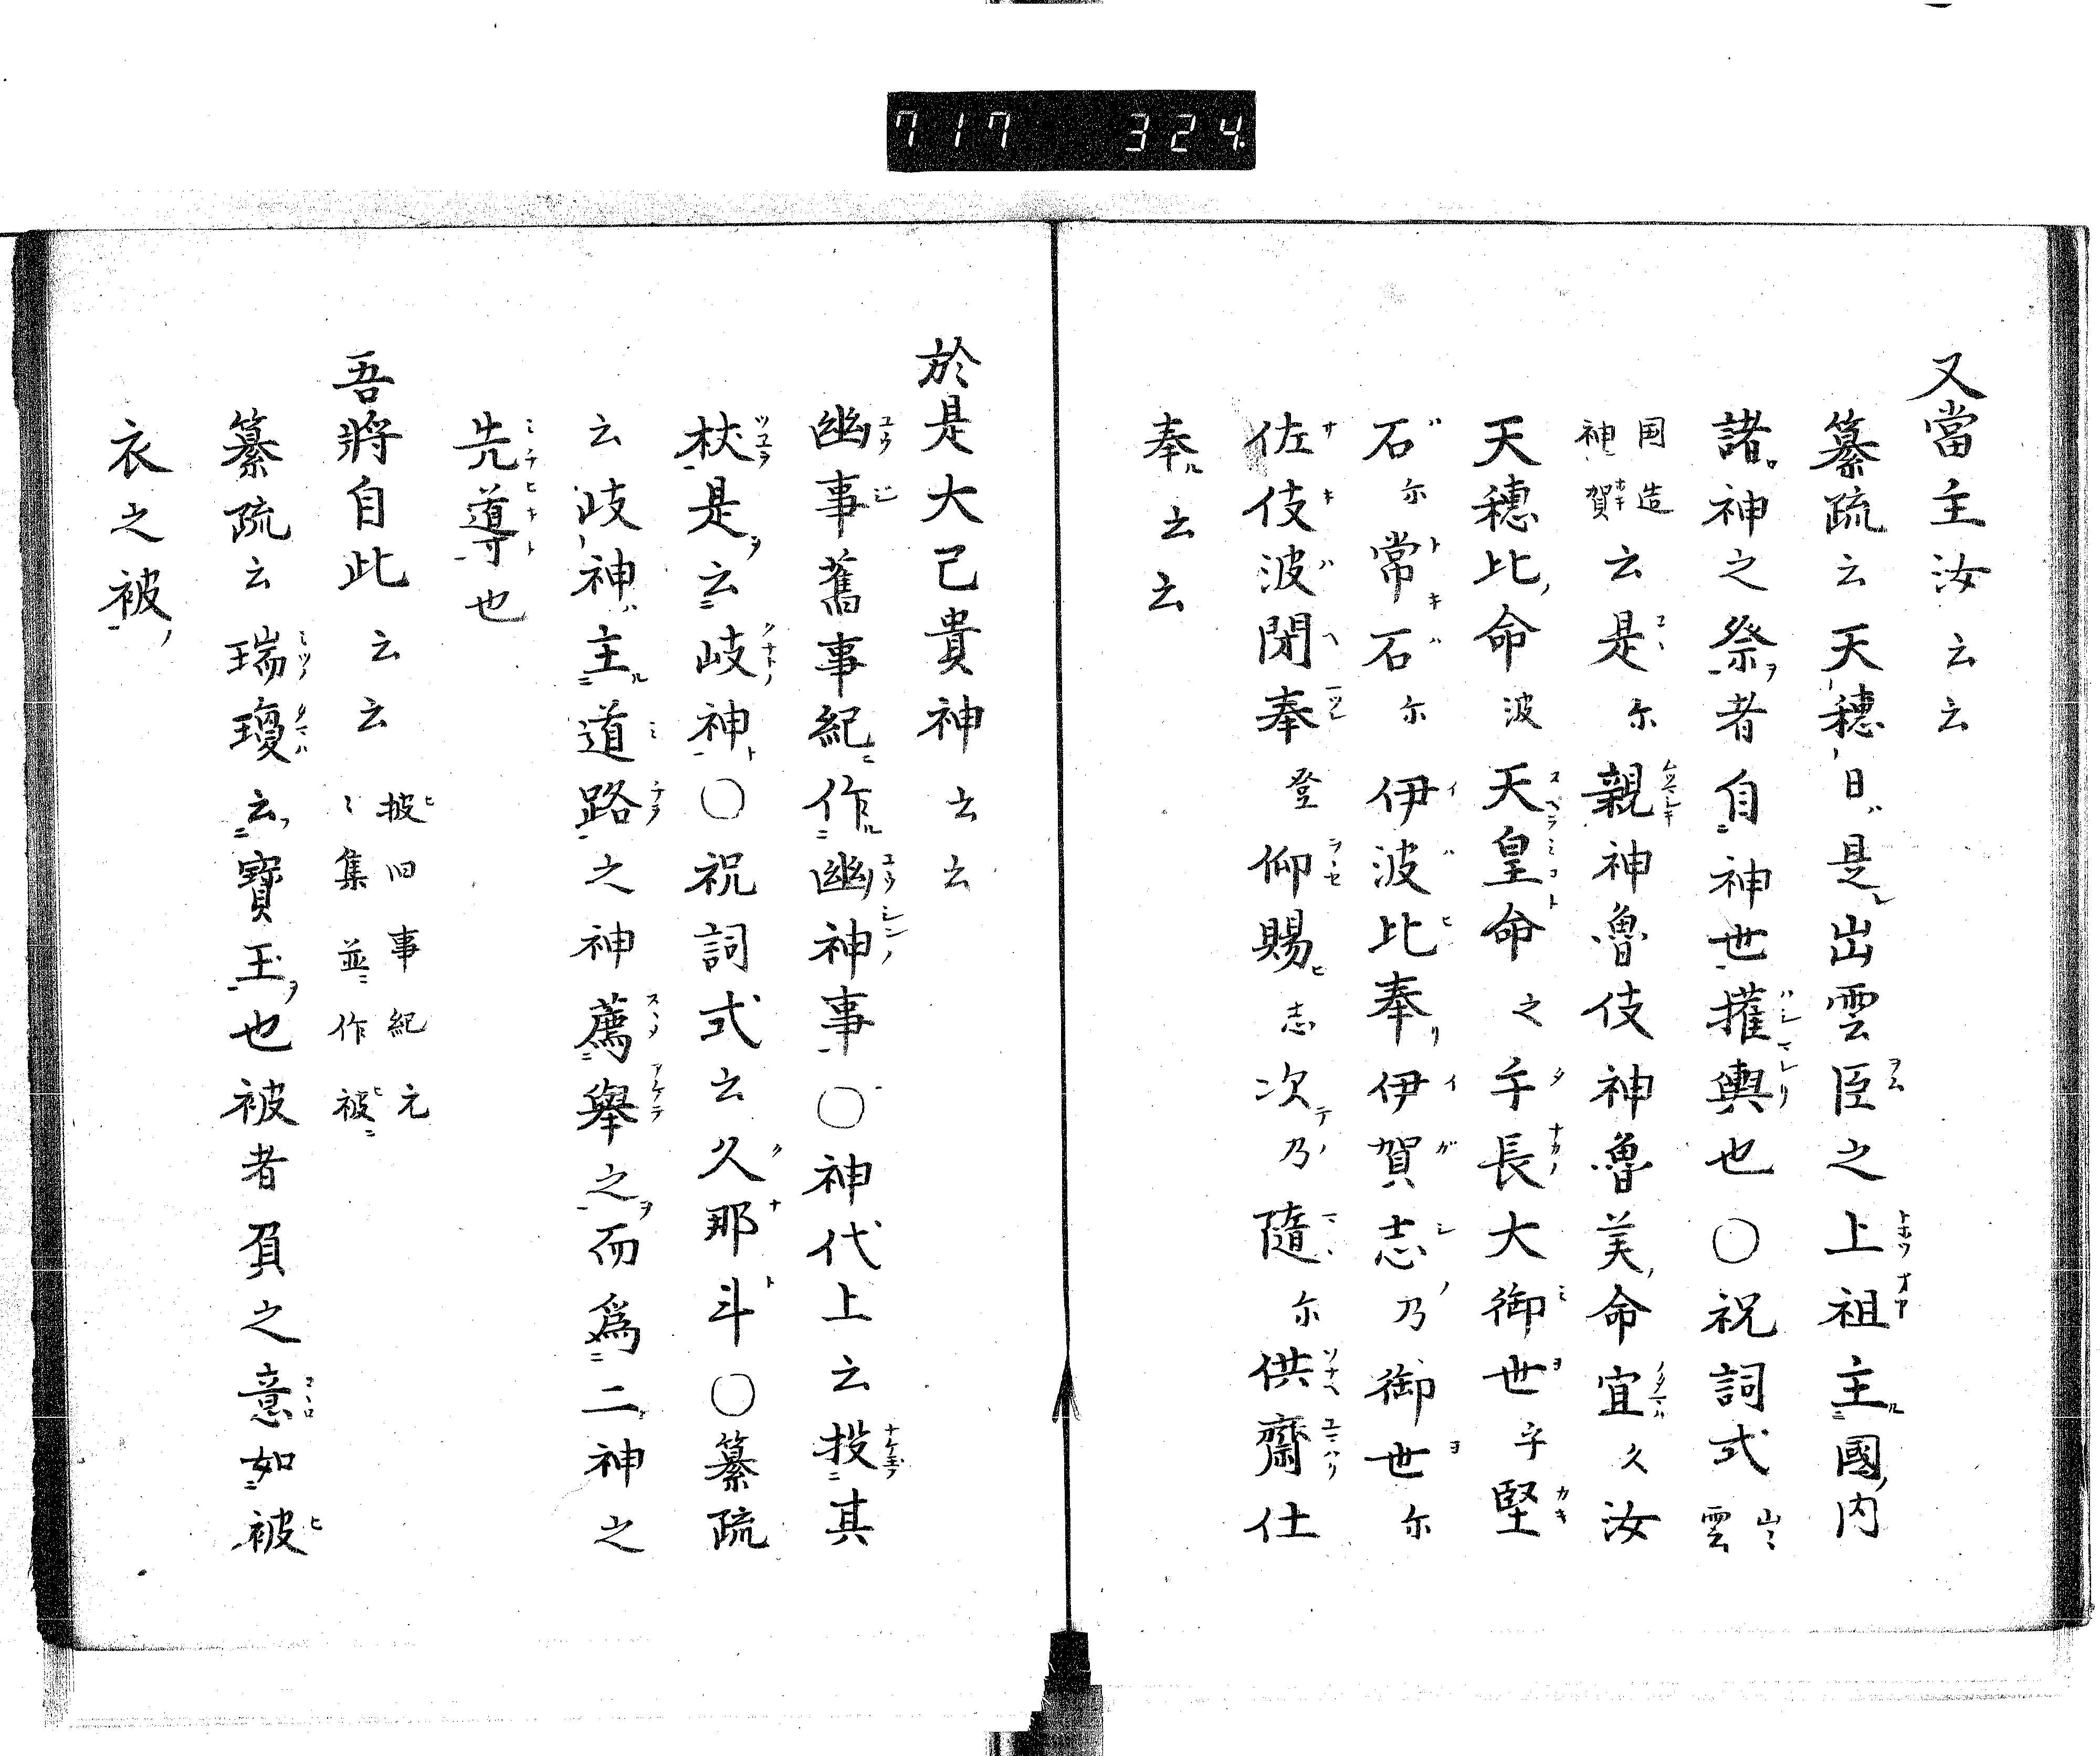 717 324
又當主汝云云
纂疏云天穗日是出雲臣之上祖主國内
諸神之祭者自神世權輿也○祝詞式出雲
国造神賀云是尓親神魯伎神魯美命宜久汝
天穗比命波天皇命之手長大御世乎堅
石尓常石尓伊波比奉伊賀志乃御世尓
佐伎波閇奉登仰賜志次乃隨尓供齋仕
奉云云
於是大己貴神云云
幽事舊事紀作幽神事○神代上云投其
杖是云岐神○祝詞式云久那斗○纂疏
云岐神主道路之神薦舉之而爲二神之
先導也
吾將自此云云披旧事紀元々集並作被
纂疏云瑞瓊云寶玉也被者負之意如被
衣之被